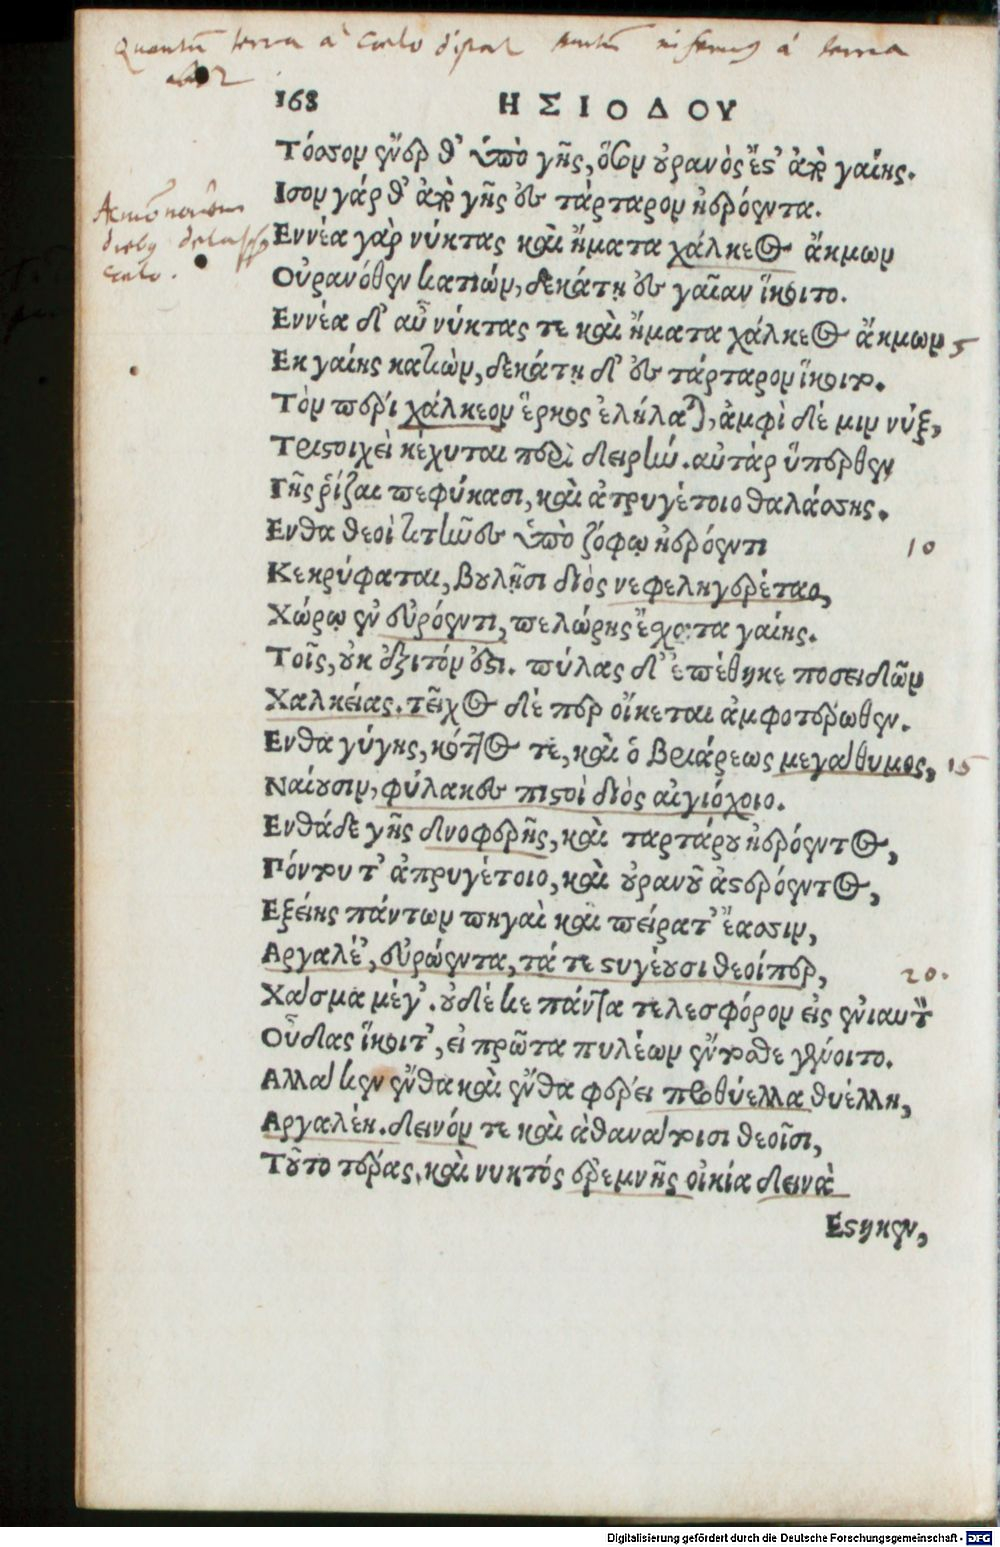 Quantũ terra à Coelo distat tantũ inferus à terra
168
ΗΣΙΟΔΟΥ
Τόσσον ἔνερθ' ὑπὸ γῆς, ὅσον ὐρανὸς ἔς' ἀπὸ γαίης.
Ισον γάρ θ' ἀπὸ γῆς ἐς τάρταρον ἠερόεντα.
Εννέα γὰρ νύκτας καὶ ἤματα χάλκεος ἄκμων
Οὐρανόθεν κατιών, δεκάτῃ ἐς γαῖαν ἵκοιτο.
Εννέα δ' αὖ νύκτας τε καὶ ἤματα χάλκεος ἄκμων 5
Εκ γαίης κατιὼν, δεκάτῃ δ' ἐς τάρταρον ἵκοιτο.
Τὸν περὶ χάλκεον ἕρκος ἐλήλαται, ἀμφὶ δέ μιν νύξ,
Τριςοιχεὶ κέχυται περὶ δειρήν. αὐτὰρ ὕπερθεν
Γῆς ῥίζαι πεφύκασι, καὶ ἀτρυγέτοιο θαλάσσης.
Ενθα θεοὶ τιτῆνες ὑπὸ ζόφῳ ἠερόεντι 10
Κεκρύφαται, βουλῇσι διὸς νεφεληγερέταο,
Χώρῳ ἐν εὐρόεντι, πελώρης ἔσχατα γαίης.
Τοῖς, οὐκ ἐξιτόν ἐςι. πύλας δ' ἐπέθηκε ποσειδῶν
Χαλκείας. τεῖχος δέ περ οἴκεται ἀμφοτέρωθεν.
Ενθα γύγης, κόττος τε, καὶ ὁ βριάρεως μεγάθυμος, 15
Ναίουσιν, φύλακες πιςοὶ διὸς αἰγιόχοιο.
Ενθάδε γῆς δνοφερῆς, καὶ ταρτάρου ἠερόεντος,
Πόντου τ' ἀτρυγέτοιο, καὶ οὐρανοῦ ἀςερόεντος,
Εξείης πάντων πηγαὶ καὶ πείρατ' ἔασσιν,
Αργαλέ', εὐρώεντα, τά τε ςυγέουσι θεοί περ, 20.
Χάσμα μέγ'. οὐδέ κε πάντα τελεσφόρον εἰς ἐνιαυτὸν
Οὖδας ἵκοιτ', εἰ πρῶτα πυλέων ἔντοσθε γένοιτο.
Αλλά κεν ἔνθα καὶ ἔνθα φέρει προθύελλα θυέλλη,
Αργαλέη. δεινόν τε καὶ ἀθανάτοισι θεοῖσι,
Τοῦτο τέρας. καὶ νυκτός ἐρεμνῆς οἰκία δεινὰ
Εςηκεν,
Digitalisierung gefördert durch die Deutsche Forschungsgemeinschaft - DFG